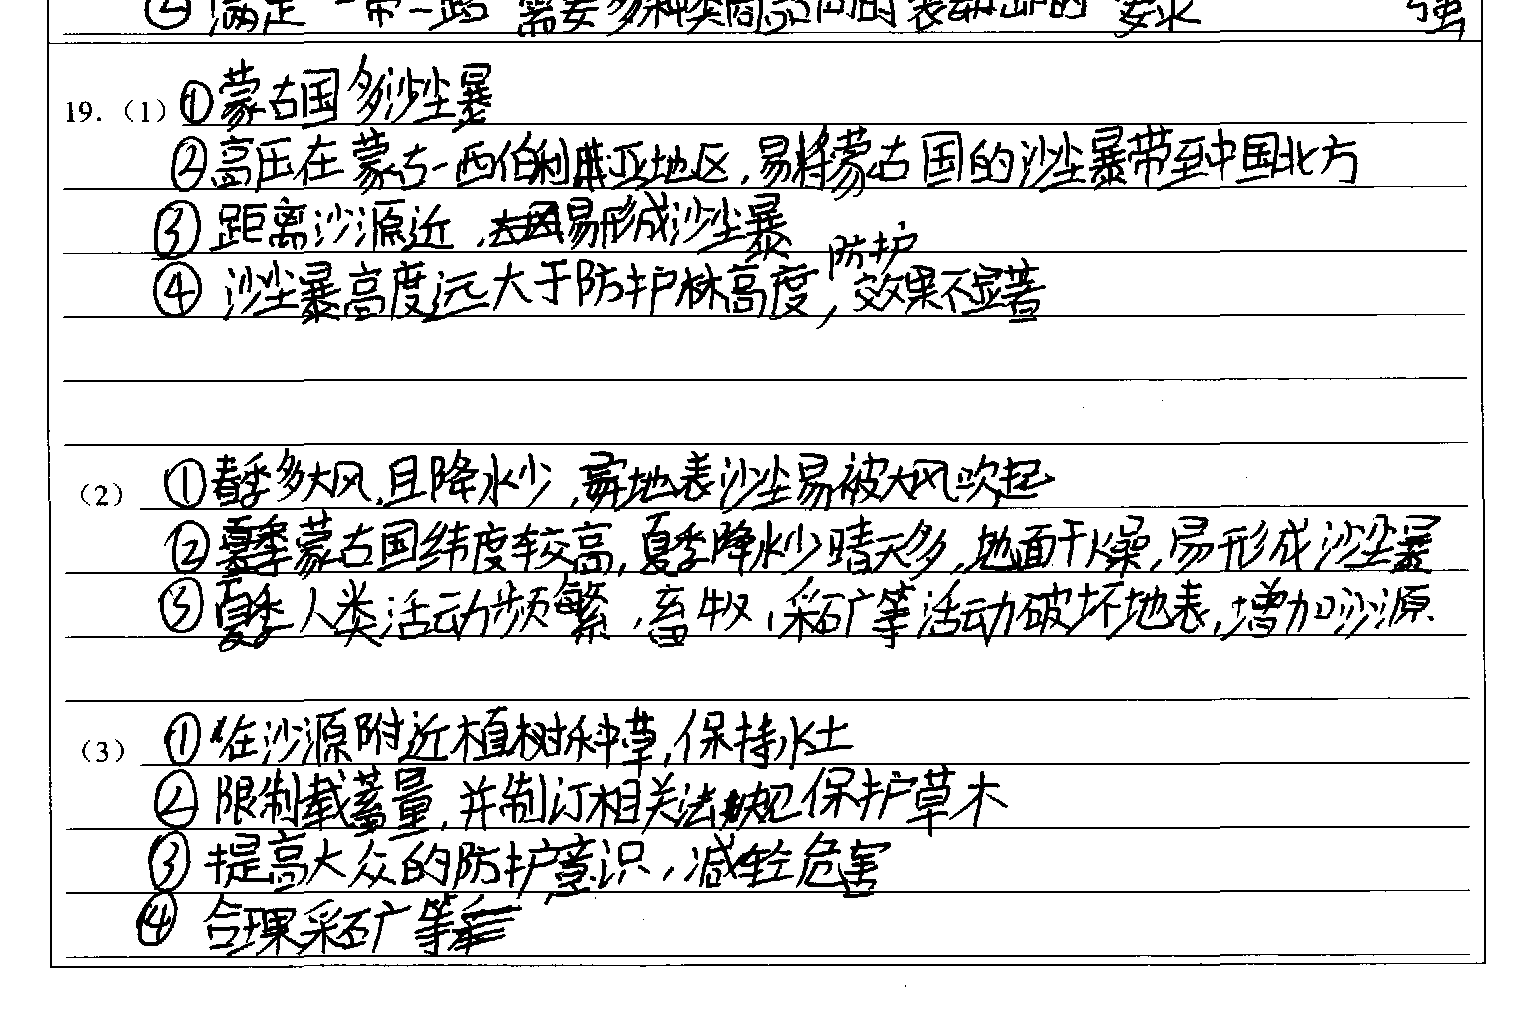 ②满足"一带一路"需要多种类商品 的 要求 强
19.（1）①蒙古国多沙尘暴
②高压在蒙古-西伯利亚地区，易将蒙古国的沙尘暴带至中国北方
③距离沙源近，易形成沙尘暴
④沙尘暴高度远大于防护林高度，防护效果不显著
（2）①春季多大风，且降水少，地表沙尘易被大风吹起
②夏季蒙古国纬度较高，夏季降水少晴天多，地面干燥，易形成沙尘暴
③夏季人类活动频繁，畜牧，采矿等活动破坏地表，增加沙源
（3）①在沙源附近植树种草，保持水土
②限制载畜量，并制订相关法规保护草木
③提高大众的防护意识，减轻危害
④合理采矿等